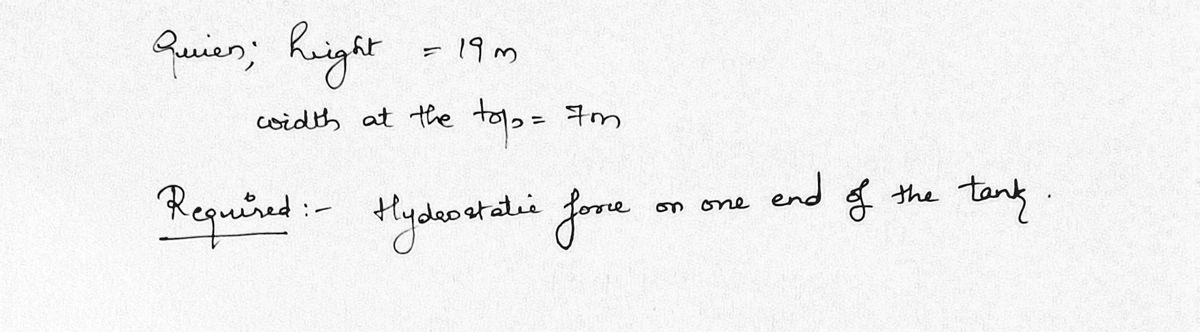 Given; height = 19 m
width at the top = 7m
Required :- Hydrostatic force on one end of the tank.